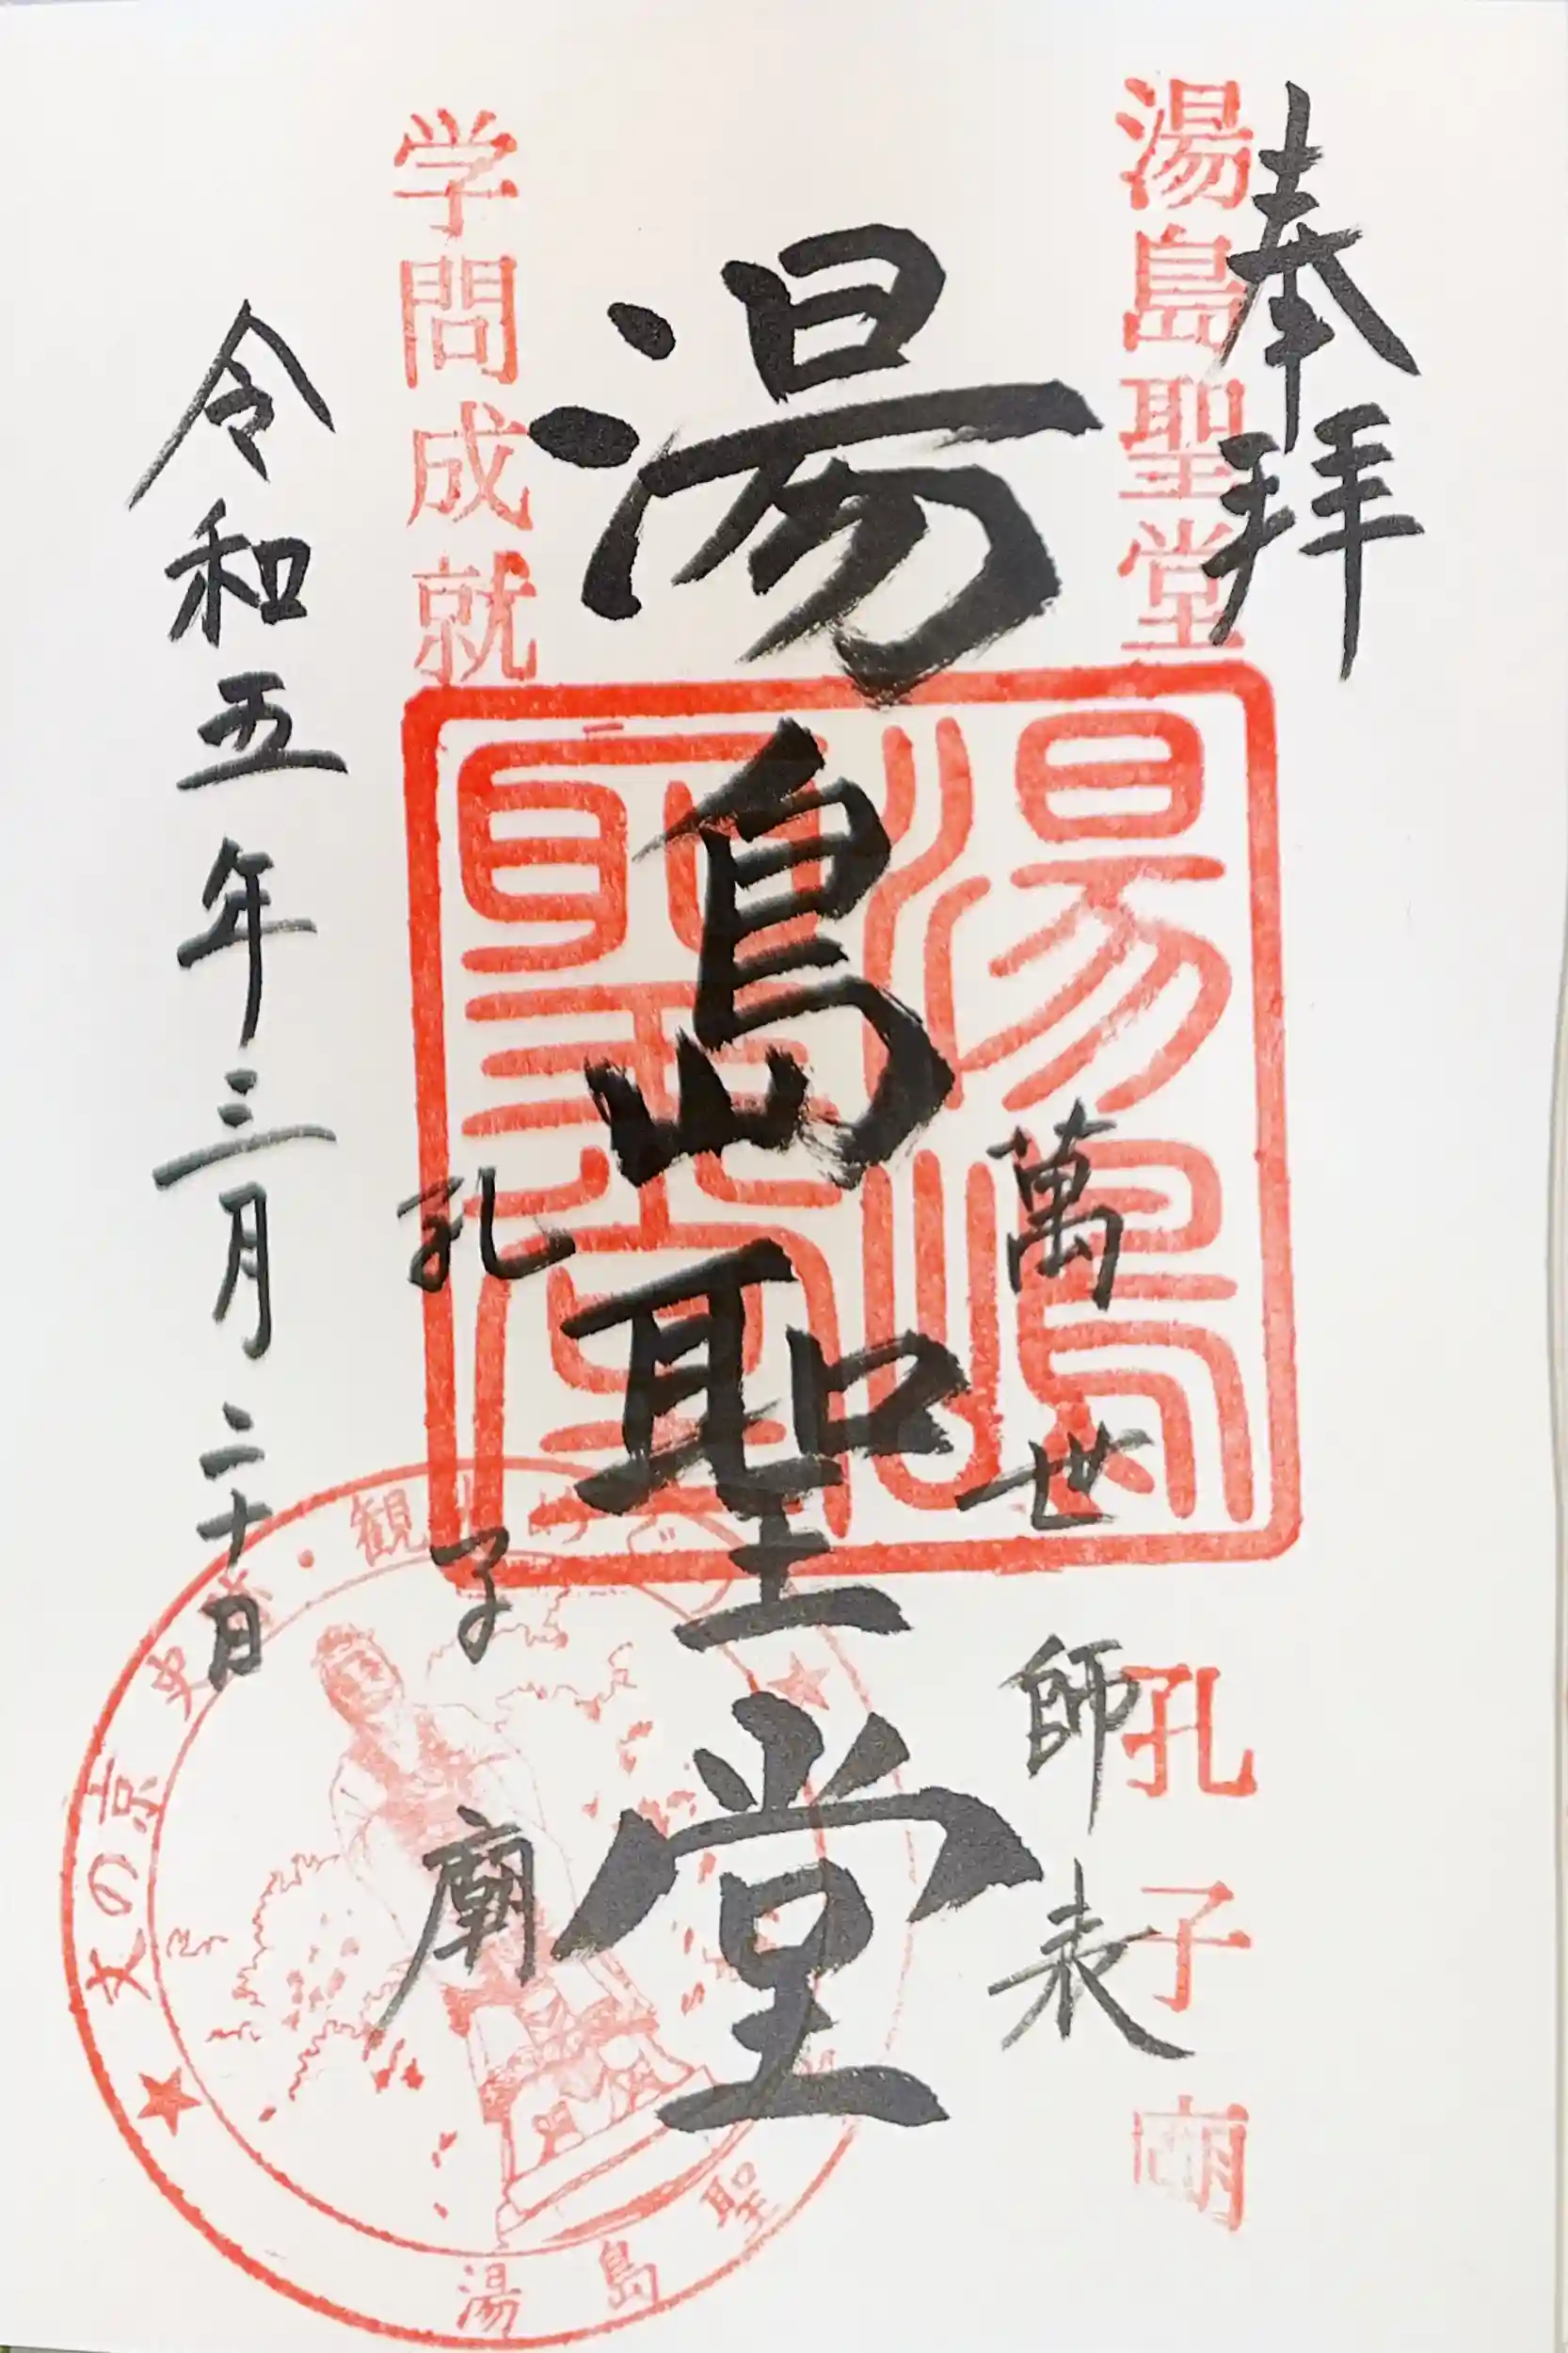 奉拝
湯島聖堂
孔子廟
萬世師表
湯島聖堂
湯島聖堂
孔子廟
学問成就
令和五年三月二十日
文の京 史
観
湯島聖